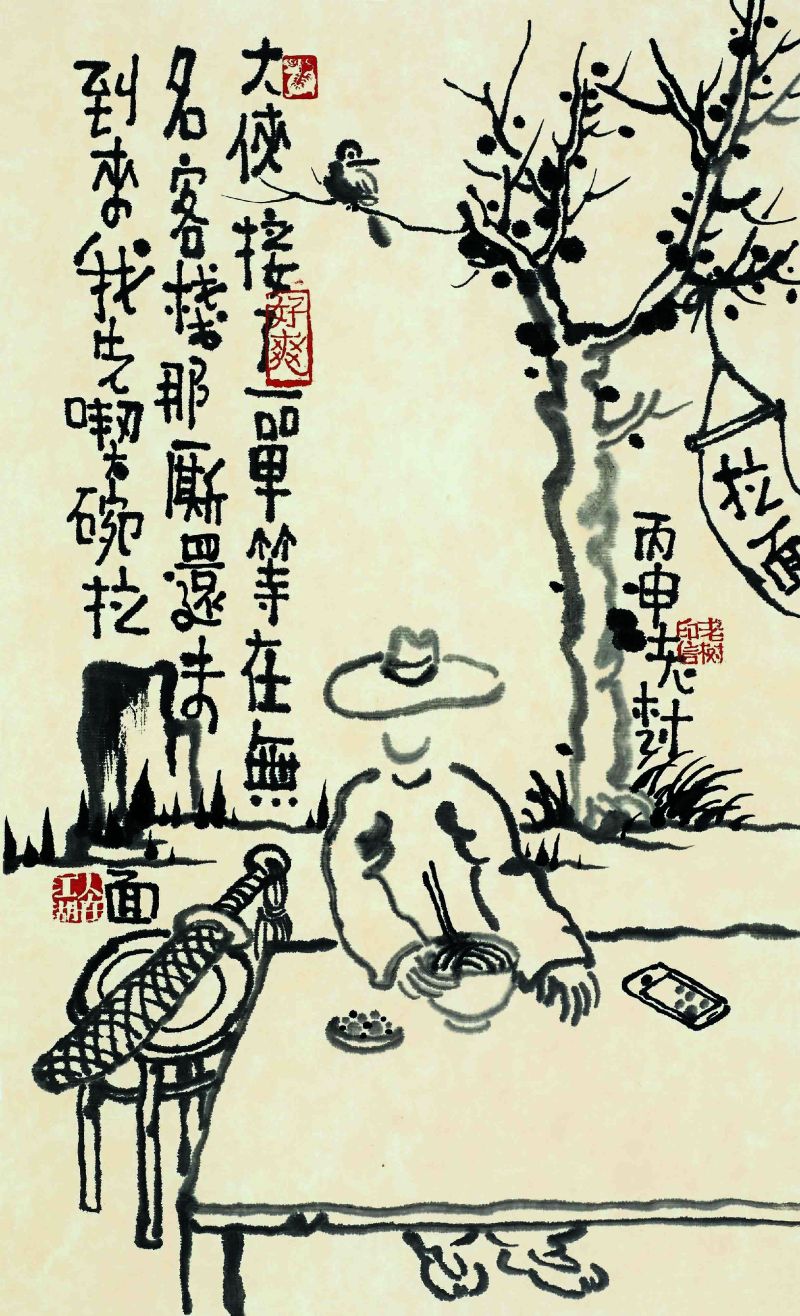 大俠接了一單等在無
名客棧那厮還未
到來我先喫碗拉
面
好爽
人在江湖
拉面
丙申老树
老树印信